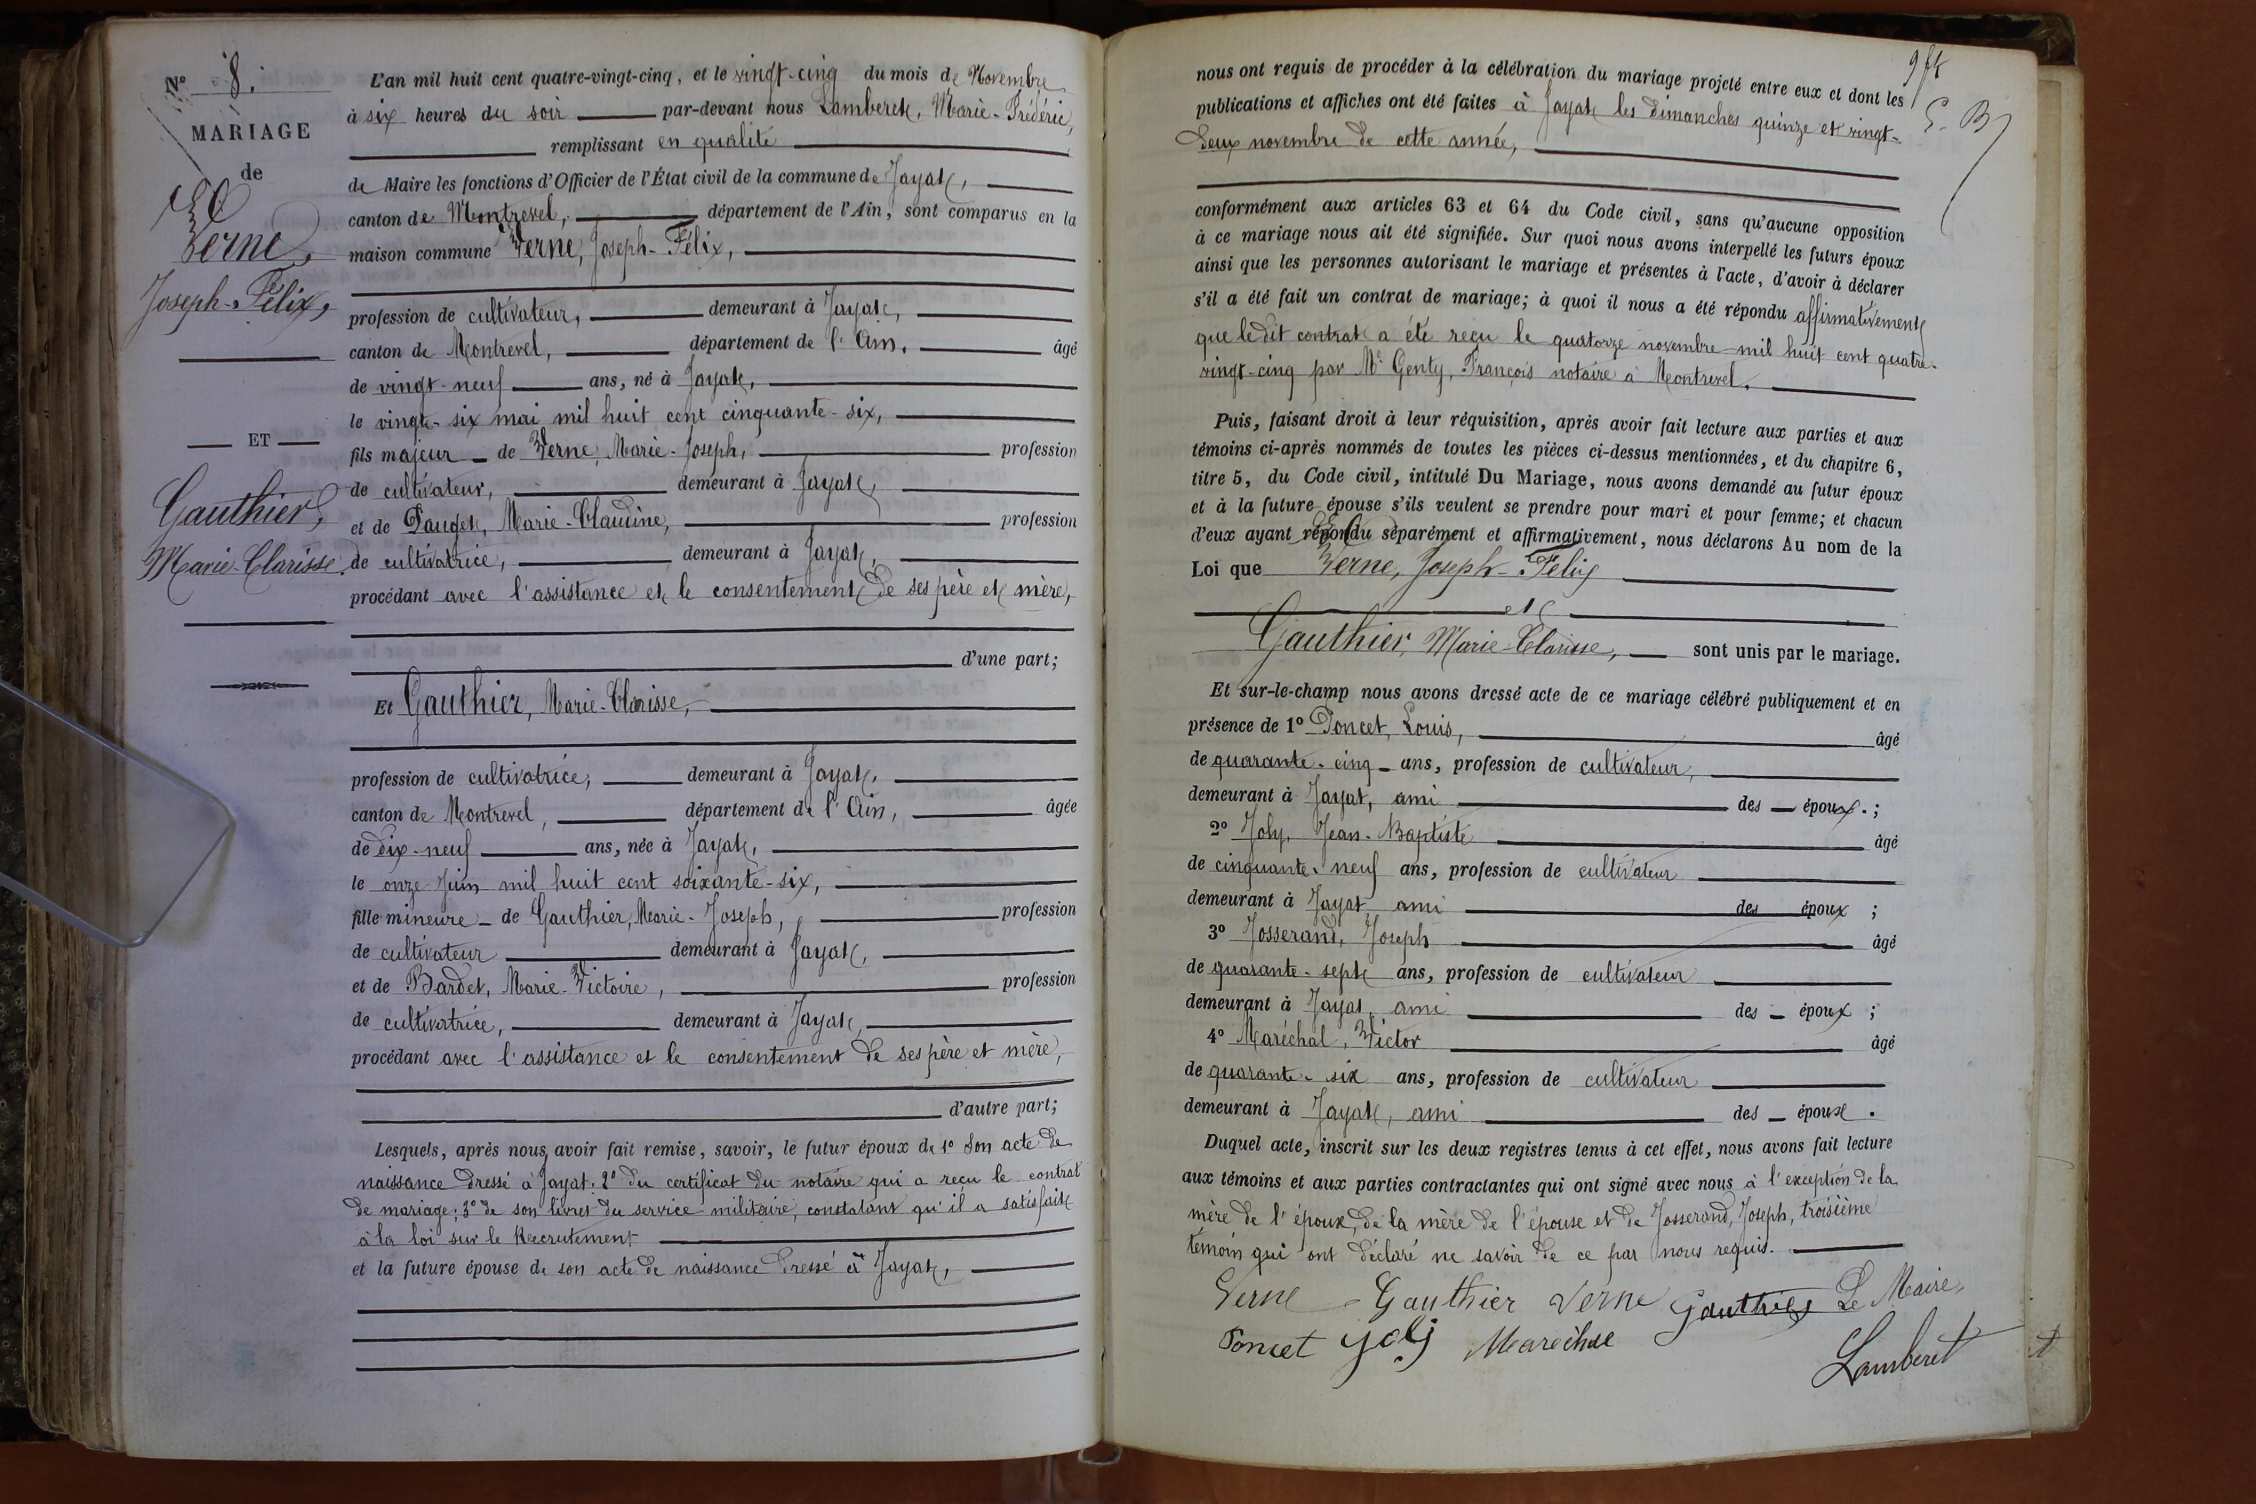 N° 8.
MARIAGE
de
Verne,
Joseph-Félix,
ET
Gauthier,
Marie-Clarisse.
L'an mil huit cent quatre-vingt-cinq, et le vingt-cinq du mois de Novembre
à six heures du soir par-devant nous Lamberet, Marie-Frédéric,
remplissant en qualité
de Maire les fonctions d'Officier de l'État civil de la commune de Jayat,
canton de Montrevel, département de l'Ain, sont comparus en la
maison commune Verne, Joseph-Félix,
profession de cultivateur, demeurant à Jayat,
canton de Montrevel, département de l'Ain, âgé
de vingt-neuf ans, né à Jayat,
le vingt-six mai mil huit cent cinquante-six,
fils majeur de Verne, Marie-Joseph, profession
de cultivateur, demeurant à Jayat,
et de Pauget, Marie-Claudine, profession
de cultivatrice, demeurant à Jayat,
procédant avec l'assistance et le consentement de ses père et mère,
d'une part;
Et Gauthier, Marie-Clarisse,
profession de cultivatrice, demeurant à Jayat,
canton de Montrevel, département de l'Ain, âgée
de dix-neuf ans, née à Jayat,
le onze Juin mil huit cent soixante-six,
fille mineure de Gauthier, Marie-Joseph, profession
de cultivateur demeurant à Jayat,
et de Bardet, Marie-Victoire, profession
de cultivatrice, demeurant à Jayat,
procédant avec l'assistance et le consentement de ses père et mère,
d'autre part;
Lesquels, après nous avoir fait remise, savoir, le futur époux de 1° Son acte de
naissance dressé à Jayat; 2° du certificat du notaire qui a reçu le contrat
de mariage; 3° de son livret du service militaire, constatant qu'il a satisfait
à la loi sur le Recrutement
et la future épouse de son acte de naissance dressé à Jayat,
nous ont requis de procéder à la célébration du mariage projeté entre eux et dont les
publications et affiches ont été faites à Jayat les dimanches quinze et vingt-
deux novembre de cette année,
conformément aux articles 63 et 64 du Code civil, sans qu'aucune opposition
à ce mariage nous ait été signifiée. Sur quoi nous avons interpellé les futurs époux
ainsi que les personnes autorisant le mariage et présentes à l'acte, d'avoir à déclarer
s'il a été fait un contrat de mariage; à quoi il nous a été répondu affirmativement
que ledit contrat a été reçu le quatorze novembre mil huit cent quatre-
vingt-cinq par Me Genty, François notaire à Montrevel.
Puis, faisant droit à leur réquisition, après avoir fait lecture aux parties et aux
témoins ci-après nommés de toutes les pièces ci-dessus mentionnées, et du chapitre 6,
titre 5, du Code civil, intitulé Du Mariage, nous avons demandé au futur époux
et à la future épouse s'ils veulent se prendre pour mari et pour femme; et chacun
d'eux ayant répondu séparément et affirmativement, nous déclarons Au nom de la
Loi que Verne, Joseph-Félix
et
Gauthier, Marie-Clarisse, sont unis par le mariage.
Et sur-le-champ nous avons dressé acte de ce mariage célébré publiquement et en
présence de 1° Poncet, Louis, âgé
de quarante-cinq ans, profession de cultivateur,
demeurant à Jayat, ami des époux.;
2° Joly, Jean-Baptiste âgé
de cinquante-neuf ans, profession de cultivateur
demeurant à Jayat ami des époux ;
3° Josserand, Joseph âgé
de quarante-sept ans, profession de cultivateur
demeurant à Jayat, ami des époux ;
4° Maréchal, Victor âgé
de quarante-six ans, profession de cultivateur
demeurant à Jayat, ami des époux .
Duquel acte, inscrit sur les deux registres tenus à cet effet, nous avons fait lecture
aux témoins et aux parties contractantes qui ont signé avec nous à l'exception de la
mère de l'époux, de la mère de l'épouse et de Josserand, Joseph, troisième
témoin qui ont déclaré ne savoir de ce par nous requis.
Verne Gauthier Verne Gauthier Le Maire,
Poncet Joly Marechal
Lamberet